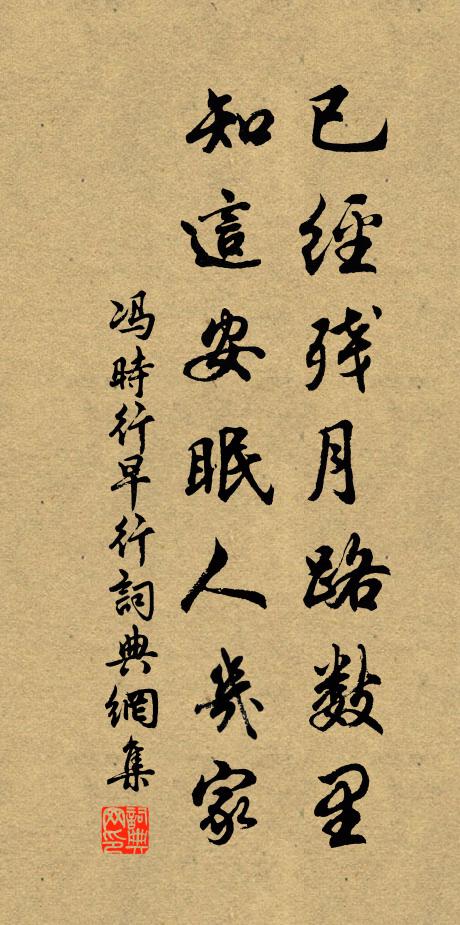 已經残月路数里
知這安眠人幾家
冯時行早行詞典網集
詞典網印